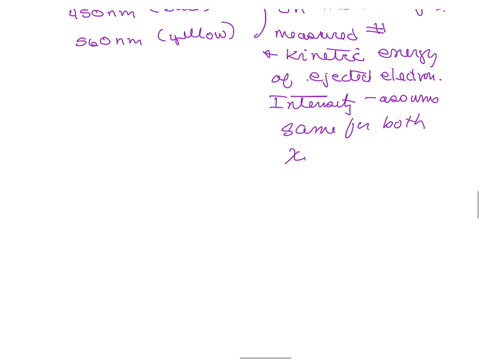 450nm (
560nm (yellow)
measured #
& kinetic energy
of ejected electron.
Intensity - assume
same for both
x